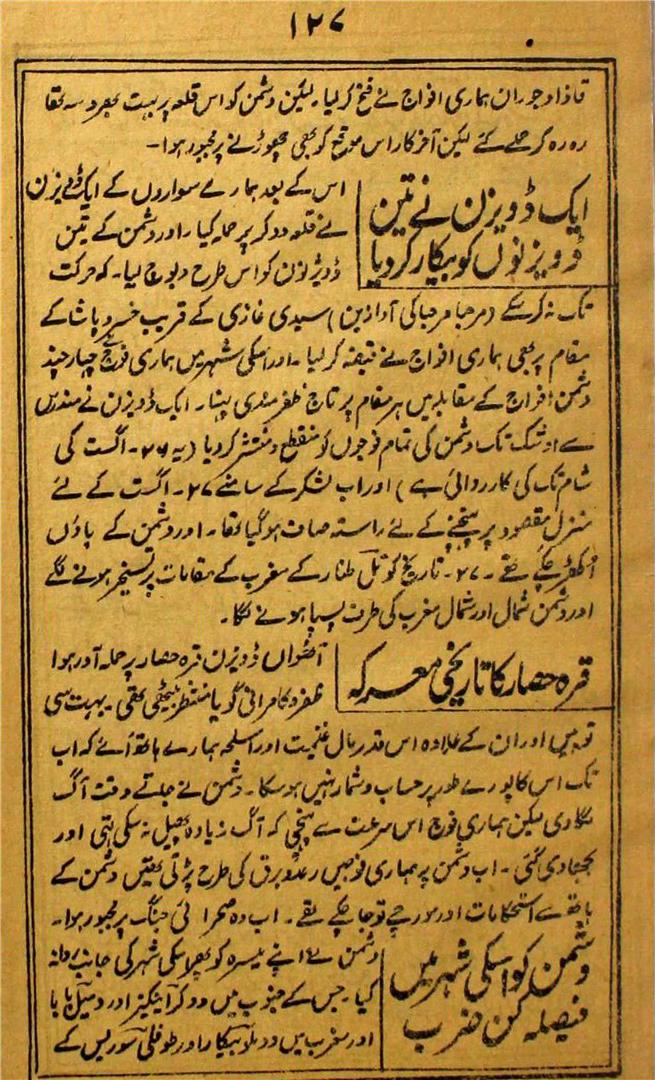 ۱۲۷
قاذاوجوران ہماری افواج نے فتح کرلیا۔ لیکن دشمن کو اس قلعہ پر بہت بھروسہ تھا
رہ رہ کر حملے کئے لیکن آخرکار اس موقع کو بھی چھوڑنے پر مجبور ہوا۔
ایک ڈویزن نے تین
ڈویزنوں کو بیکار کردیا
اس کے بعد ہمارے سواروں کے ایک ڈویزن
نے قلعہ دوکر پر حملہ کیا۔ اور دشمن کے تین
ڈویژنوں کو اس طرح دبوچ لیا۔ کہ حرکت
تک نہ کرسکے (مرحبا مرحبا کی آوازین) سیدی غازی کے قریب خسرو پاشا کے
مقام پر بھی ہماری افواج نے قبضہ کرلیا۔ اور اسکی شہر میں ہماری فوج چہار چند
دشمن افواج کے مقابلہ میں ہر مقام پر تاج ظفرمندی پہنا۔ ایک ڈویزن نے
سے اوشک تک دشمن کی تمام فوجوں کو منقطع و منتشر کردیا (یہ ۲۶۔ اگست کی
شام تک کی کارروائی ہے) اور اب لشکر کے سامنے ۲۷۔ اگست کے لئے
منزل مقصود پر پہنچنے کے لئے راستہ صاف ہوگیا تھا۔ اور دشمن کے پاؤں
اکھڑ چکے تھے۔ ۲۷۔ تاریخ کو تل طنار کے مغرب کے مقامات پر تسخیر ہونے لگے
اور دشمن شمال اور شمال مغرب کی طرف پسپا ہونے لگا۔
قرہ حصار کا تاریخی معرکہ
آٹھواں ڈویزن قرہ حصار پر حملہ آور ہوا
ظفر و کامرانی گویا منتظر بیٹھی تھی۔ بہت سی
توپیں اور ان کے علاوہ اس قدر مال غنیمت اور اسلحہ ہمارے ہاتھ آئے کہ اب
تک اس کا پورے طور پر حساب و شمار نہیں ہوسکا۔ دشمن نے جاتے وقت آگ
لگادی لیکن ہماری فوج اس سرعت سے پہنچی کہ آگ زیادہ پھیل نہ سکی تھی اور
بجھادی گئی۔ اب دشمن پر ہماری فوجیں رعد و برق کی طرح پڑتی تھیں دشمن کے
ہاتھ سے استحکامات اور مورچے تو جاچکے تھے۔ اب وہ صحرائی جنگ پر مجبور ہوا۔
دشمن کو اسکی شہر میں
فیصلہ کن ضرب
دشمن نے اپنے میسرہ کو پھر اسکی شہر کی جانب روانہ
کیا۔ جس کے جنوب میں دوکر آینگیز اور دمیل بابا
اور مغرب میں اور طوقلی سوریس کے